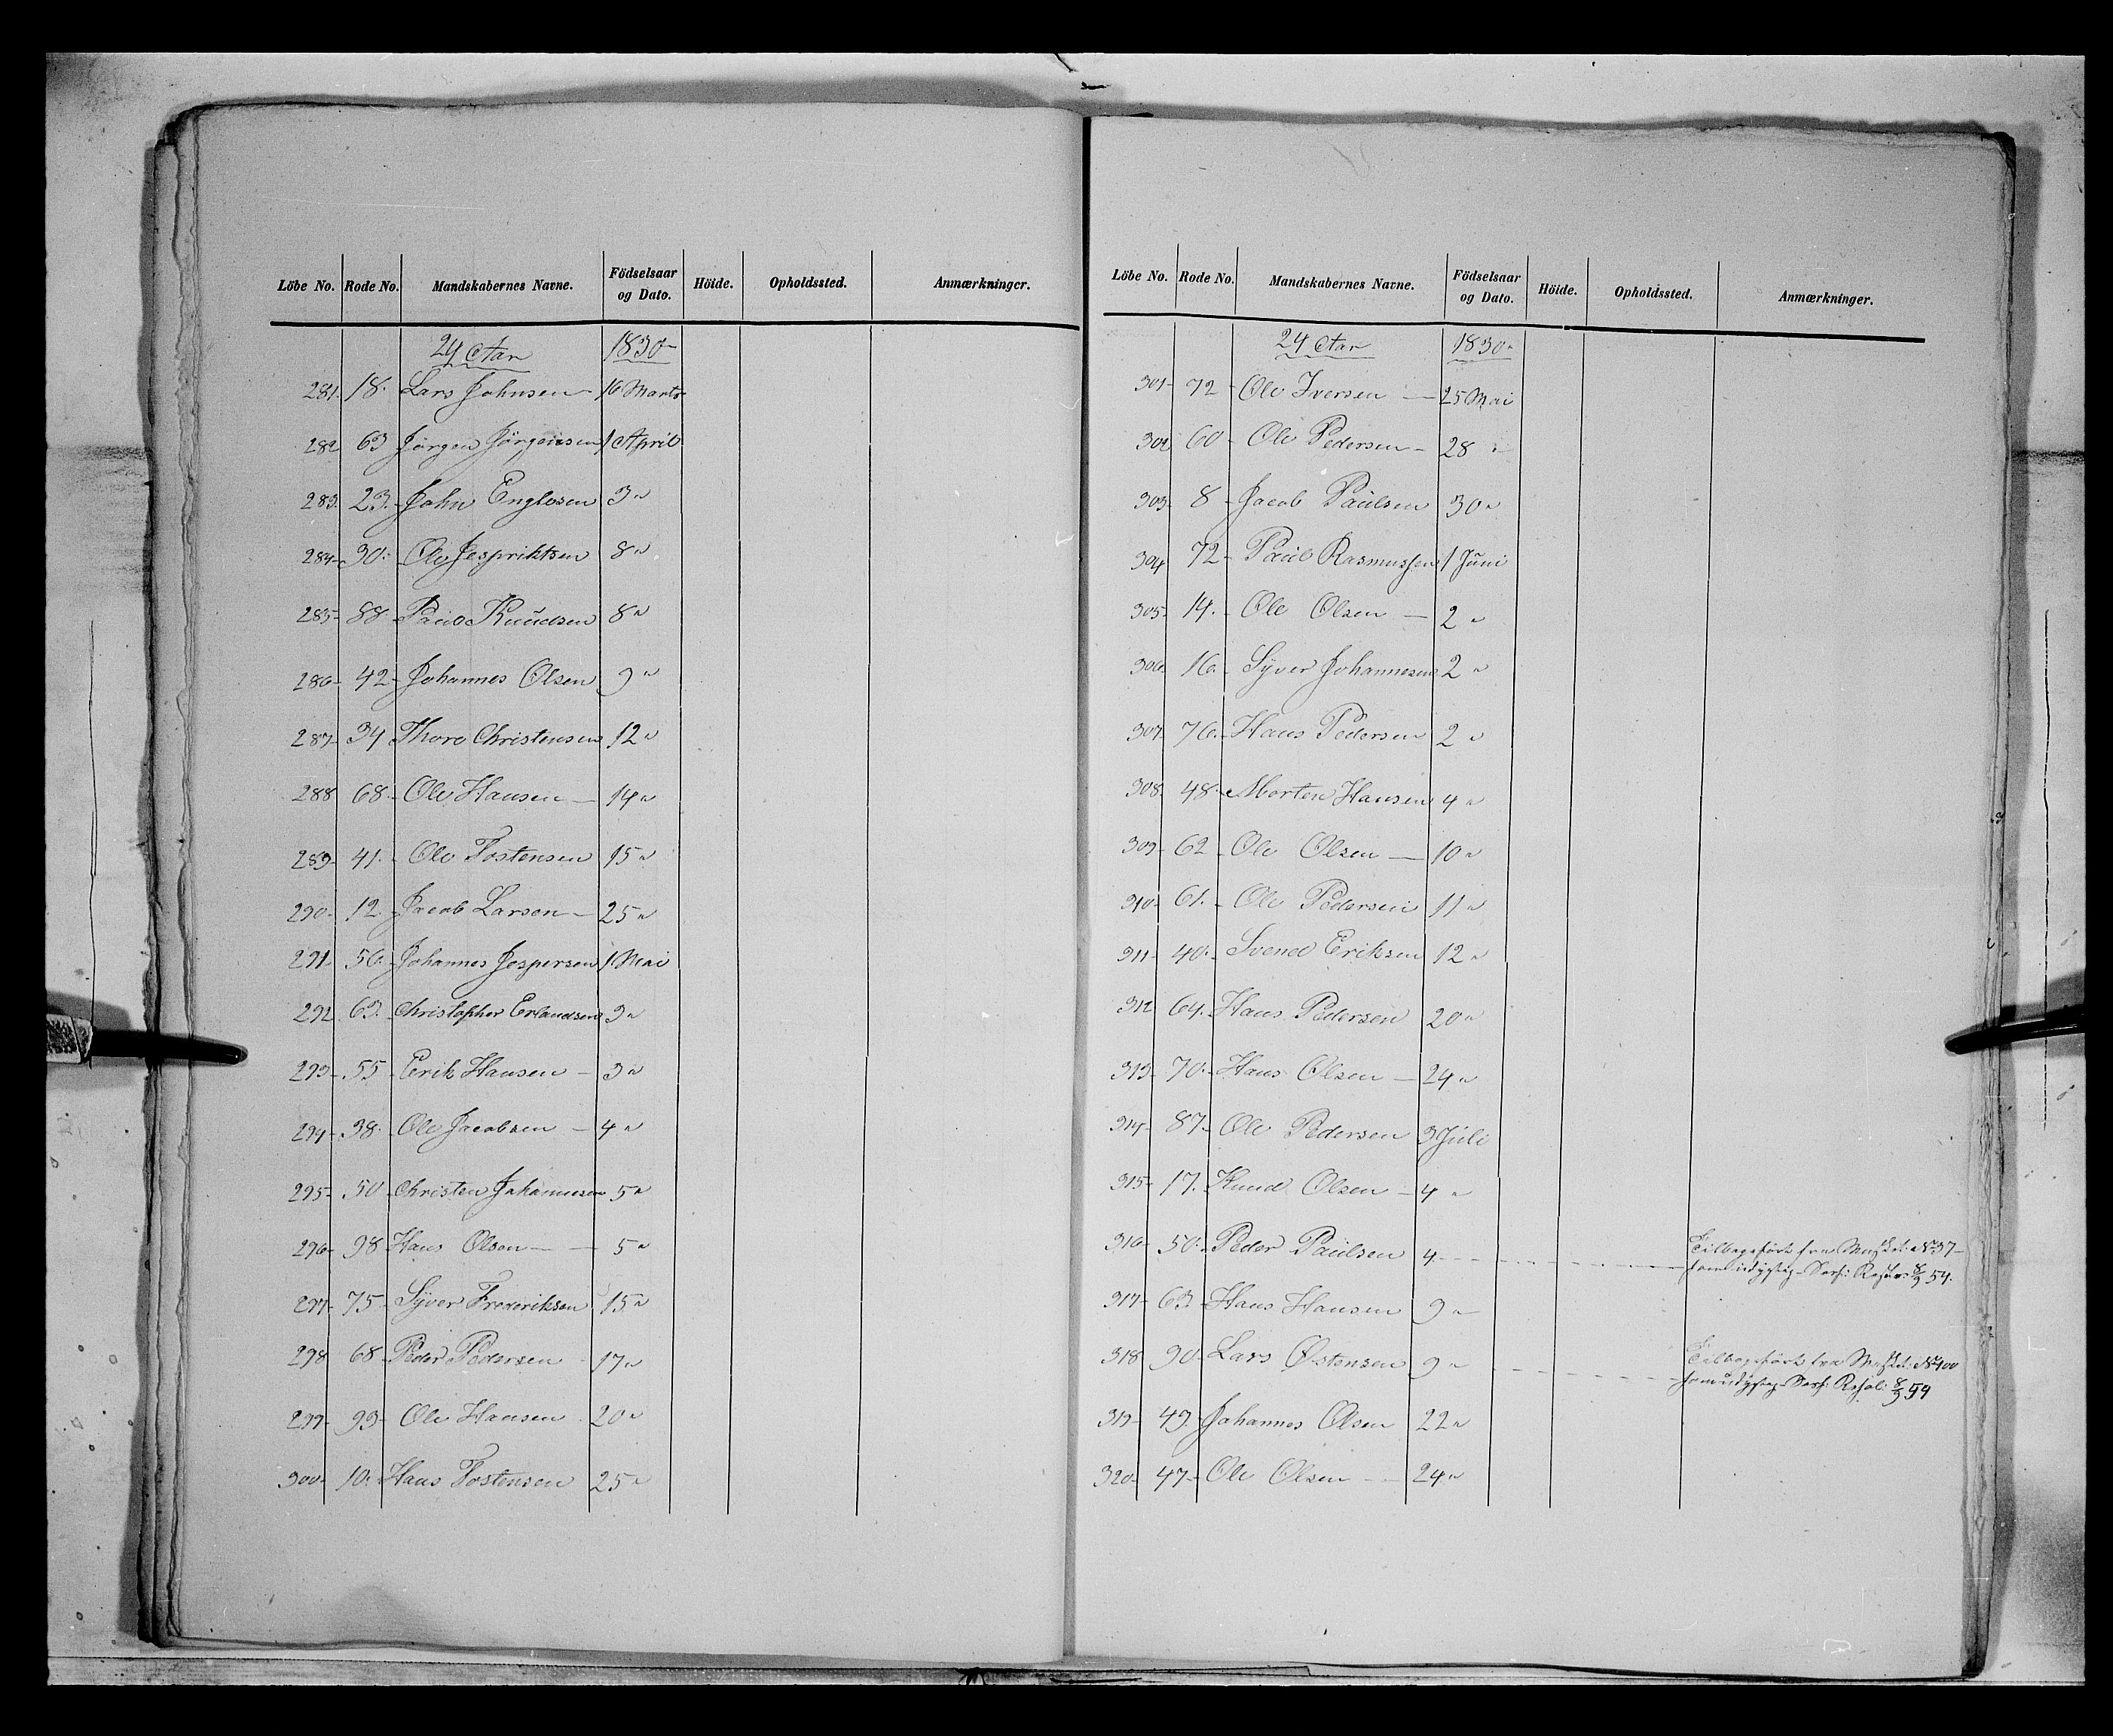 Löbe No. Rode No. Mandskabernes Navne. Födselsaar og Dato. Höide. Opholdssted. Anmærkninger.
24 Aar 1830
281. 18. Lars Johnsen - 16 Marts
282 63 Jörgen Jörgensen 1 April
283. 23. John Englosen 3 "
284- 30. Ole Jespriktsen 8 "
285- 88. Paul Knudsen 8 "
286- 42- Johannes Olsen 9 "
287- 34 Thore Christensen 12 "
288 68. Ole Hansen - 14 "
289- 41. Ole Tostensen 15 "
290- 12. Jacob Larsen - 25 "
291- 56. Johannes Jespersen 1 Mai
292 63. Christopher Erlandsen 3 "
293- 55 Erik Hansen - 3 "
294- 38. Ole Jacobsen - 4 "
295- 50 Christen Johannesen 5 "
296- 98 Hans Olsen - 5 "
297- 75- Syver Frederiksen 15 "
298 68- Peder Pedersen 17 "
299- 93- Ole Hansen 20 "
300- 10. Hans Tostensen 25 "
Löbe No. Rode No. Mandskabernes Navne. Födselsaar og Dato. Höide. Opholdssted. Anmærkninger.
24 Aar 1830
301- 72 - Ole Iversen - 25 Mai
302 60 - Ole Pedersen - 28 "
303- 8 - Jacob Paulsen 30 "
304 72- Paul Rasmussen 1 Juni
305- 14. Ole Olsen - 2 "
306- 16. Syver Johannesen 2 "
307- 76. Hans Pedersen 2 "
308- 48. Morten Hansen 4 "
309- 62 - Ole Olsen - 10 "
310- 61. - Ole Pedersen 11 "
311- 40. Svend Eriksen 12 "
312 64. Hans Pedersen 20 "
313- 70. Hans Olsen - 24 "
314- 87. Ole Pedersen 3 Juli
315- 17. Knud Olsen - 4 "
316- 50. Peder Paulsen 4 - Tilbageført fra N 37
som udygtig 8/9 54.
317- 63 Hans Hansen 9 "
318 90- Lars Østensen 9 " Tilbageført fra N 400
som udygtig 8/9 54
319- 49. Johannes Olsen 22 "
320- 47- Ole Olsen - 24 "